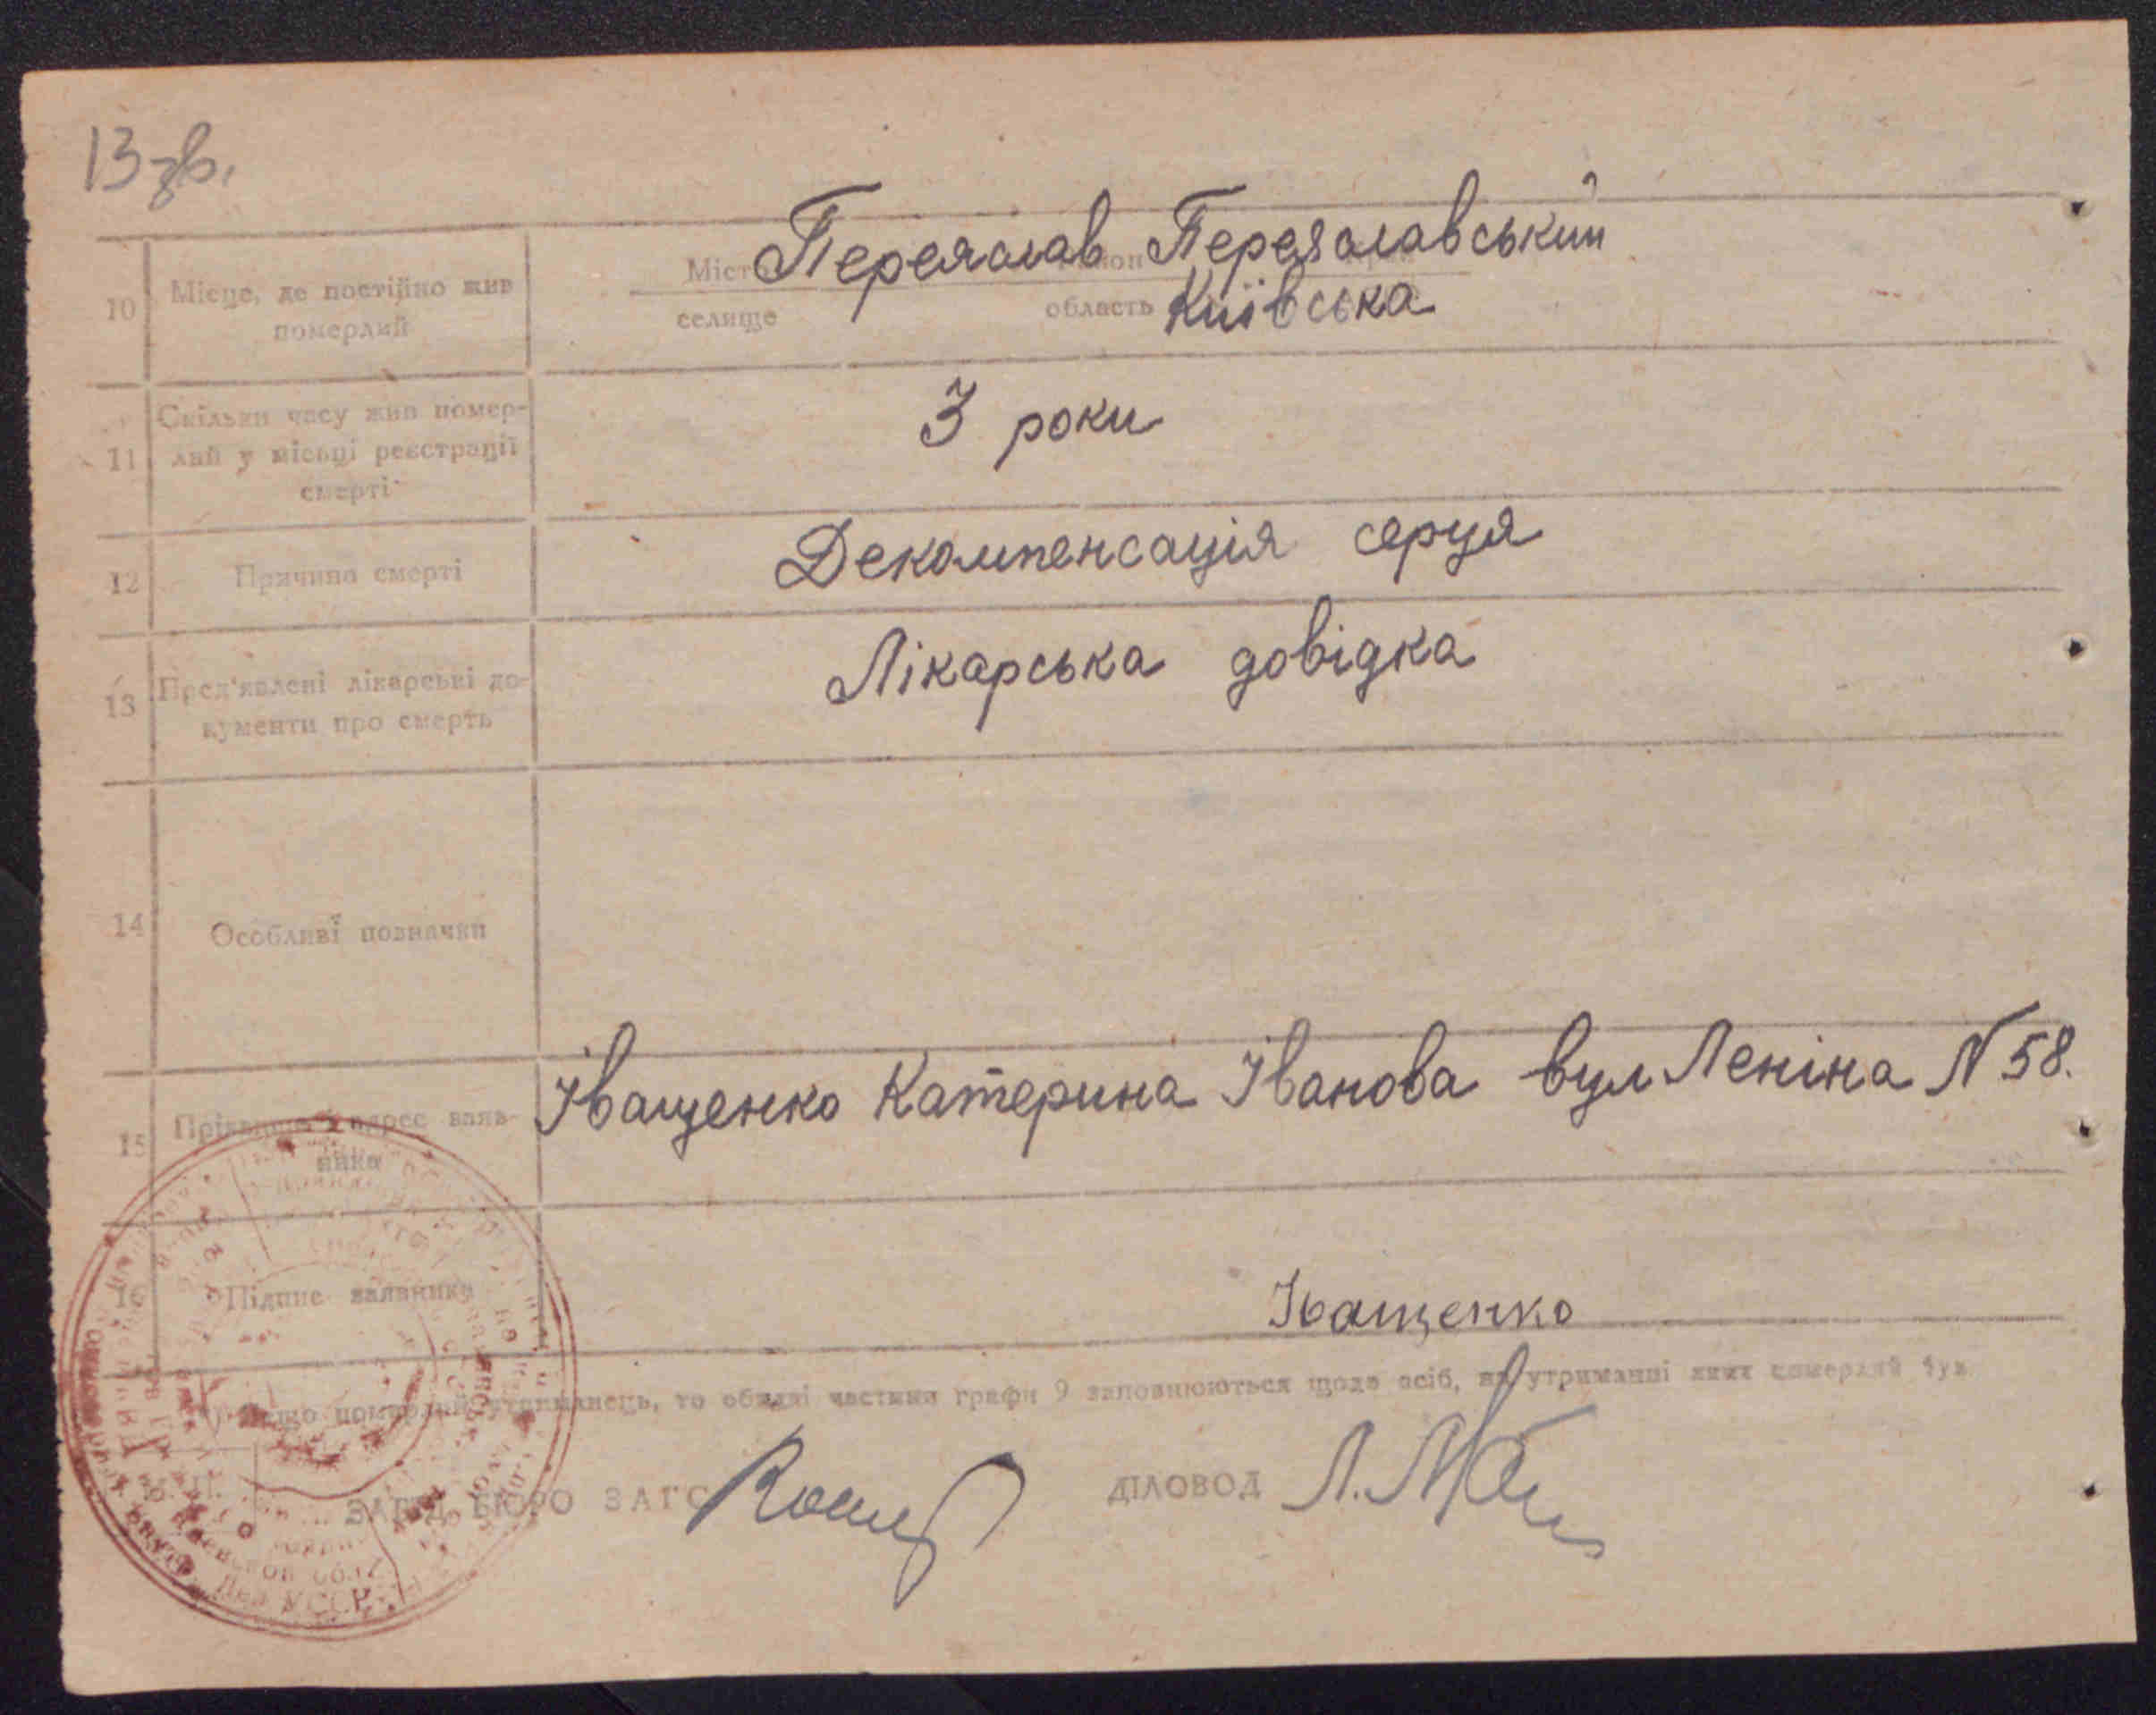 13 зв.
Місто Переяслав район Переяславський
10 Місце, де постійно жив
померлий
селище область Київська
11 Скільки часу жив помер-
лий у місьці реєстрації
смерті
3 роки
12 Причина смерті Декомпенсація серця
13 Пред'явлені лікарські до-
кументи про смерть
Лікарська довідка
14 Особливі позначки
15 Прізвище і адрес заяв-
ника
Іващенко Катерина Іванова вул Леніна N 58.
16 Підпис заявника Іващенко
Якщо померлий утриманець, то обидві частини графи 9 заповнюються щодо осіб, на утриманні яких померлий був
ЗАВІД. БЮРО ЗАГС ДІЛОВОД Л.
УССР